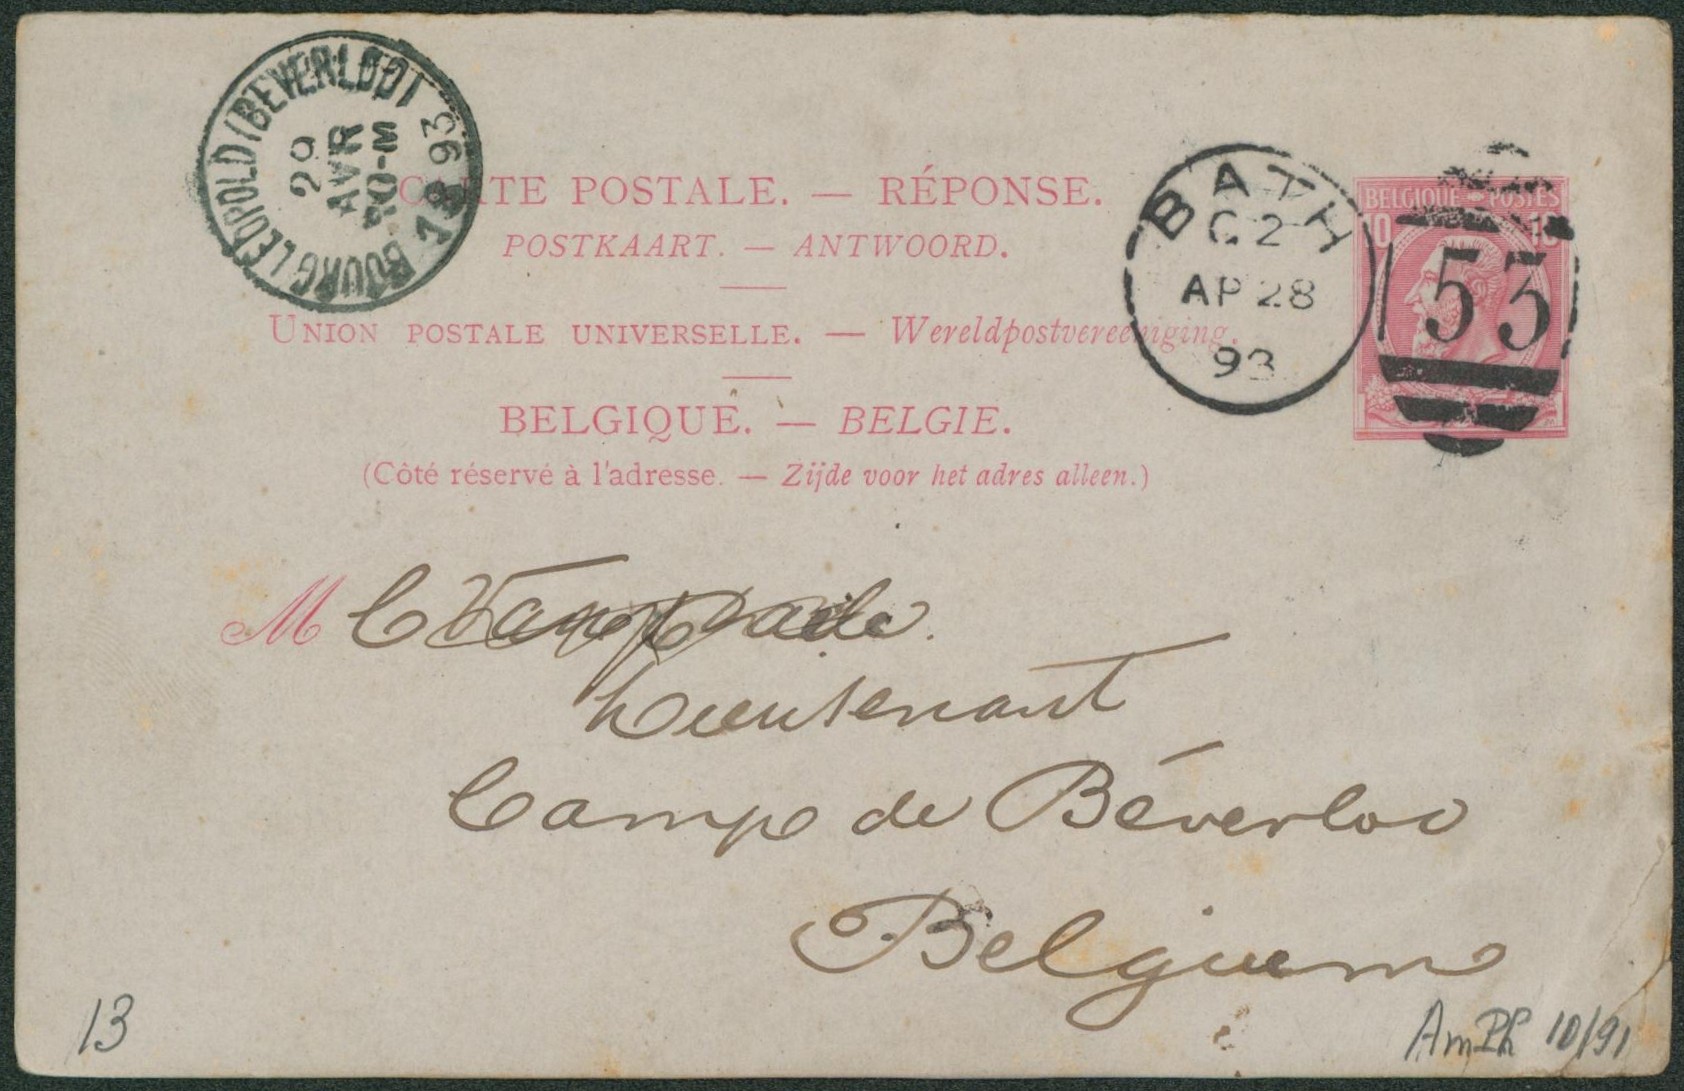 BOURG LEOPOLD (BEVERLOO)
29
AVR
1893
CARTE POSTALE. — RÉPONSE.
POSTKAART. — ANTWOORD.
UNION POSTALE UNIVERSELLE. — Wereldpostvereeniging.
BELGIQUE. — BELGIE.
(Côté réservé à l'adresse. — Zijde voor het adres alleen.)
BATH
C2
AP 28
93
BELGIQUE POSTES
10 10
53
M C
Lieutenant
Camp de Béverloo
Belgium
13
AmPh 10/91